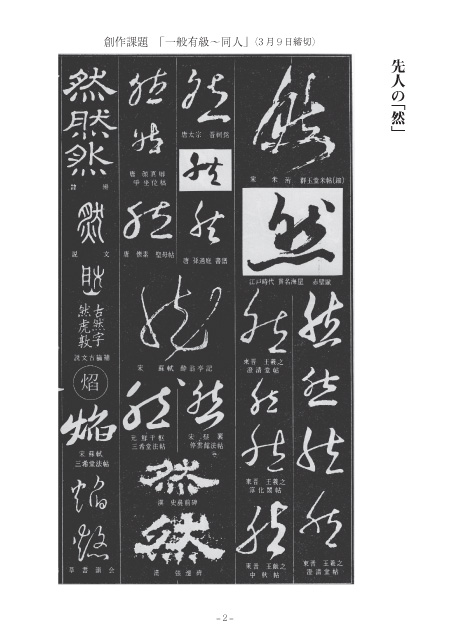 創作課題 「一般有級～同人」（３月９日締切）
先人の「然」
宋 米芾 群玉堂米帖
江戸時代 貫名海屋 赤壁賦
東晋 王羲之
澄清堂帖
東晋 王羲之
淳化閣帖
東晋 王献之
中秋帖
東晋 王羲之
澄清堂帖
唐太宗 晋祠銘
唐 孫過庭 書譜
唐 顔真卿
争坐位帖
唐 懐素 聖母帖
宋 蘇軾 酔翁亭記
元 鮮于枢
三希堂法帖
宋 蔡襄
停雲館法帖
漢 史晨前碑
漢 張遷碑
然
然
然
説 文
古然字
然虎敦
説文古籀補
焰
宋 蘇軾
三希堂法帖
草書韻会
－２－